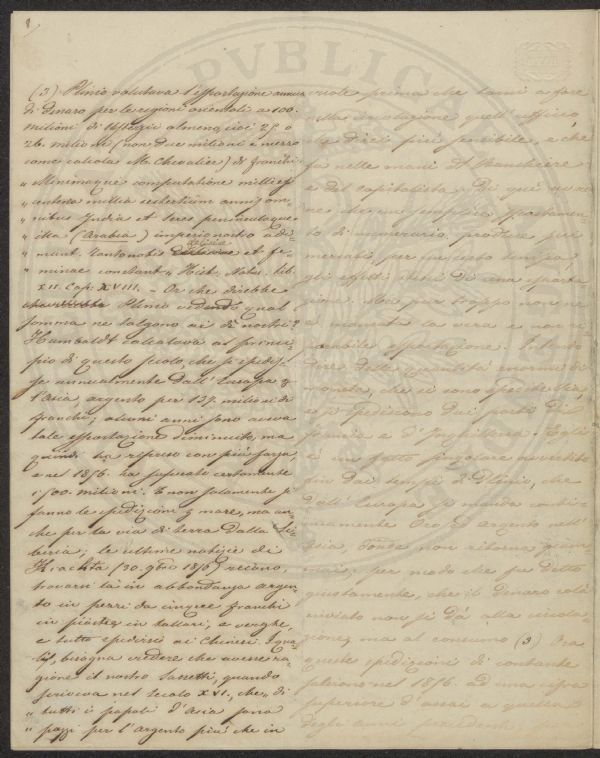 (3) Plinio valutava l'esportazione annua
di denaro per le regioni orientali a 100.
milioni di sesterzii almeno, cioè 25 o
26. milioni (non due milioni e mezzo
come calcola M. Chevalier) di franchi:
„ Minimaque computatione millies
„ centena millia sestertium annis om-
„ nibus India et Seres peninsulaque
„ illa (Arabia) imperio nostro adi-
„ munt. Tantonobi deliciae et fe-
„ minae constant „ Hist. Natur. lib.
XII. Cap. XVIII. - Or che direbbe
Plinio vedendo qual
somma ne salgono ai dì nostri?
Humboldt calcolava al princi-
pio di questo secolo, che si spedis-
se annualmente dall'Europa per
l'Asia, argento per 137. milioni di
franchi; alcuni anni sono aveva
tale esportazione diminuito, ma
quindi ha ripreso con più forza,
e nel 1856. ha superato certamente
i 500. milioni. E non solamente si
fanno le spedizioni per mare, ma an-
che per la via di terra dalla Si-
beria; le ultime notizie di
Kiachta (30. 1856) recano,
trovarsi là in abbondanza argen-
to in pezzi da cinque franchi
in piastre, in talleri, e verghe,
e tutto spedirsi ai Chinesi.
bisogna credere che avesse ra-
gione il nostro Sassetti, quando
scriveva nel secolo XVI., che „ di
„ tutti i popoli d'Asia sono
„ pazzi per l'argento più che in
ruote prima che torni a fare
sulla circolazione quell'ufficio,
che dirò più sensibile, e che
fa nelle mani del banchiere
e del capitalista. Di quì
ne, che un semplice spostamen-
to di numerario produce sui
mercati, per un certo tempo,
gli effetti stessi di una esporta-
zione. Ma pur troppo non ne
è mancata la vera e non ri-
esportazione. S'intende
dire della quantità enorme di
moneta, che si sono spedite
e si spediscono dai porti di
Francia e d'Inghilterra. Egli
è un fatto singolare avvertito
fin dai tempi di Plinio, che
dall'Europa si manda conti-
nuamente Oro ed Argento nell'
Asia, donde non ritorna giam-
mai; per modo che fu detto
giustamente, che il denaro colà
inviato non si dà alla circola-
zione, ma al consumo (3) Ora
queste spedizioni di contante
salirono nel 1856. ad una cifra
superiore d'assai a quella
degli anni